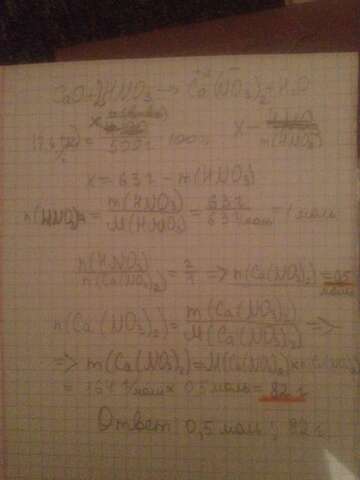 CaO+2HNO₃ → Ca(NO₃)₂+H₂O
12,6% = 500г 100% x - m(HNO₃)
x = 63г - m(HNO₃)
n(HNO₃) = m(HNO₃)/M(HNO₃) = 63г/63г/моль = 1 моль
n(HNO₃)/n(Ca(NO₃)₂) = 2/1 => n(Ca(NO₃)₂) = 0,5 моль
n(Ca(NO₃)₂) = m(Ca(NO₃)₂)/M(Ca(NO₃)₂) =>
=> m(Ca(NO₃)₂) = M(Ca(NO₃)₂) × n(Ca(NO₃)₂)
= 164 г/моль × 0,5 моль = 82 г
Ответ: 0,5 моль; 82 г